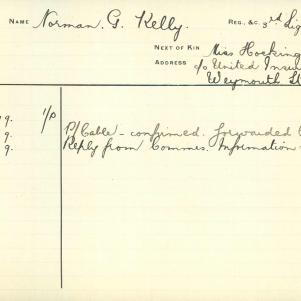 NAME Norman. G. Kelly. REG., &C. 3rd Lig
NEXT OF KIN Miss Hocking
ADDRESS c/o United Insu
Weymouth St
9. 1/0 P/Cable - confirmed. forwarded
9. Reply from Commrs. Information
9.